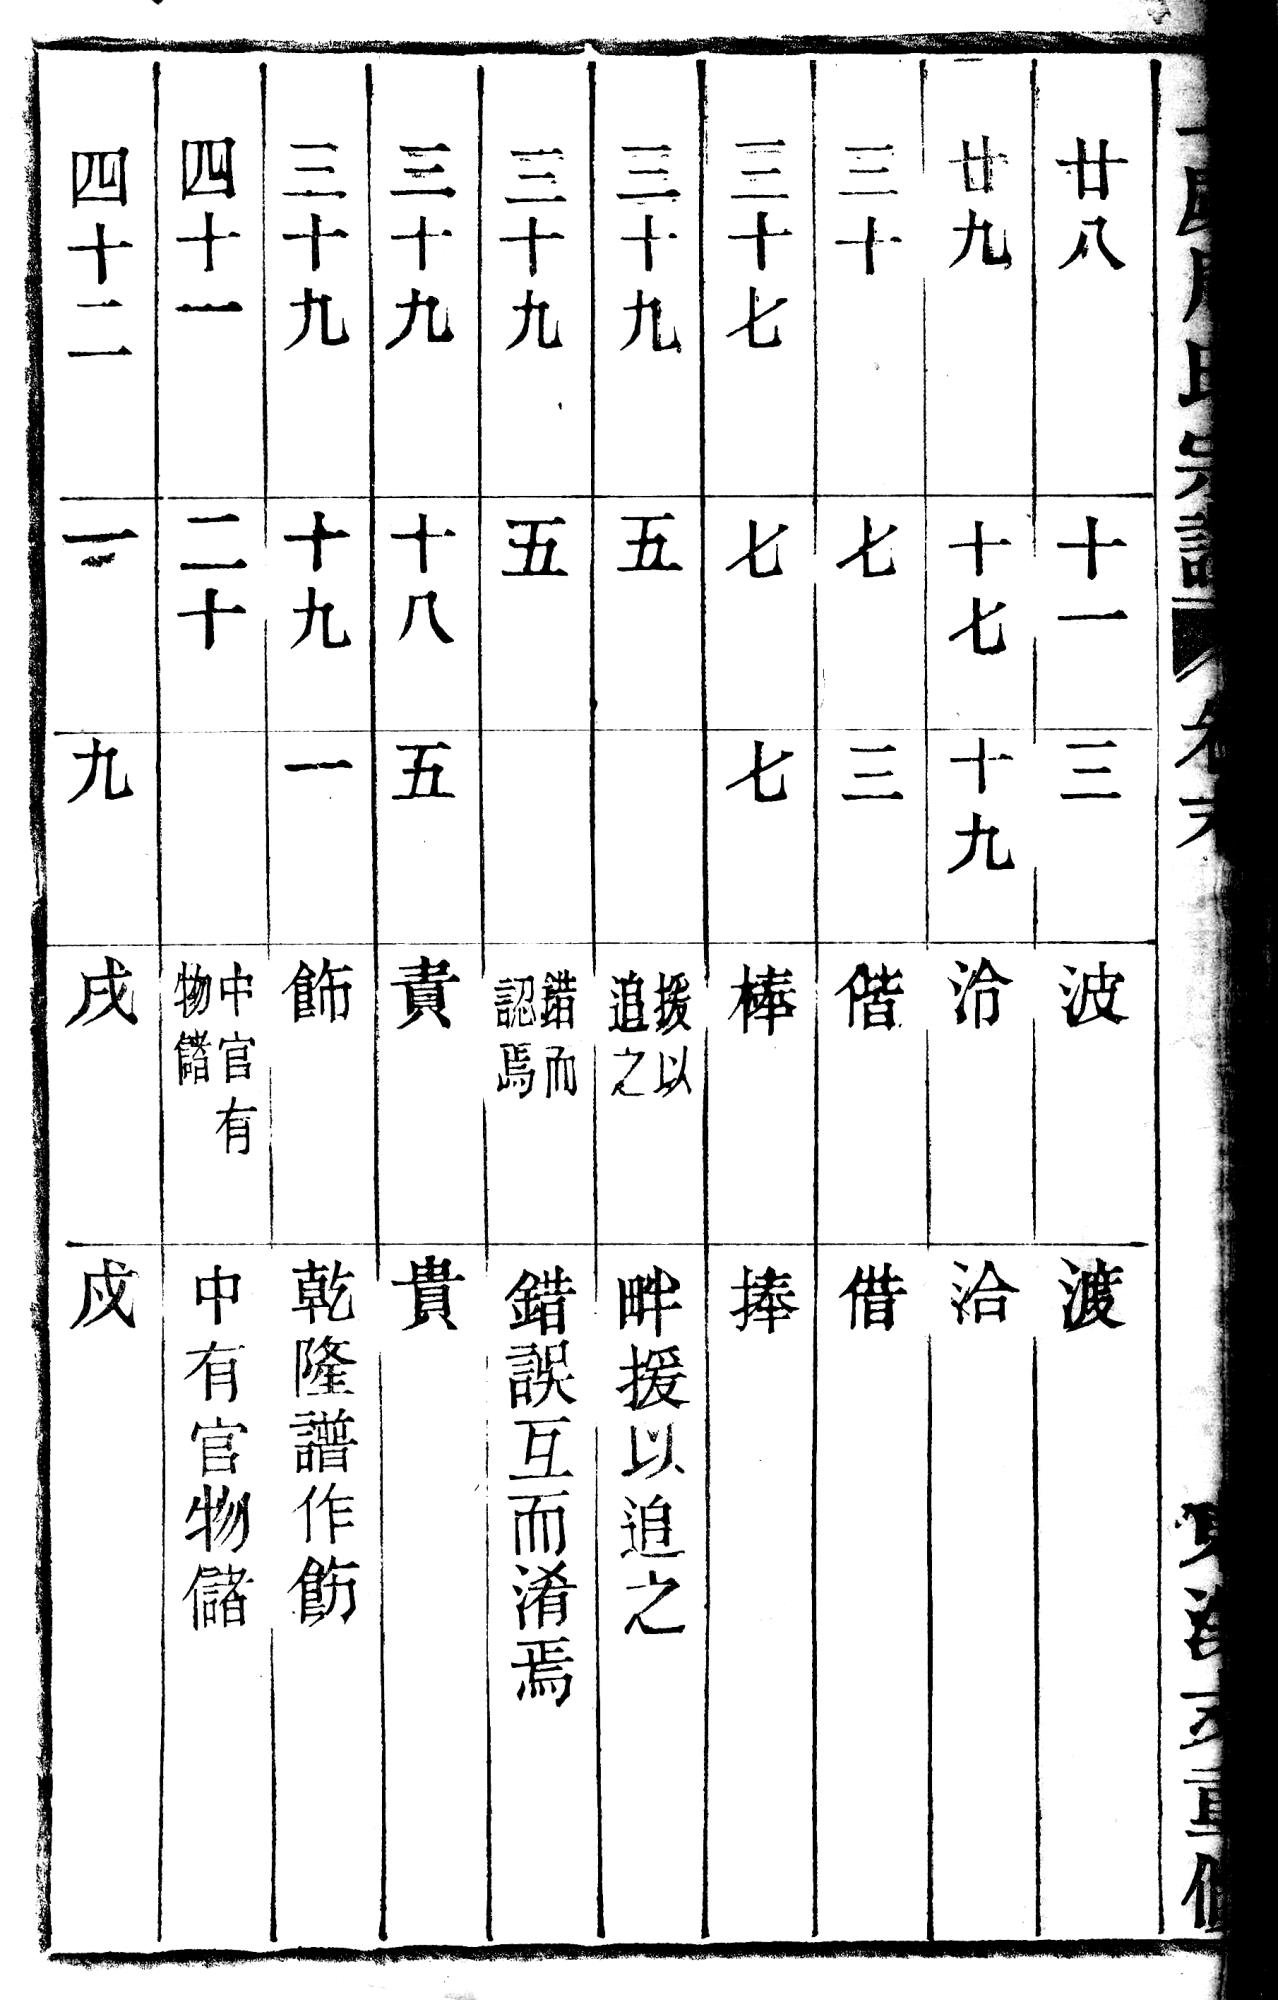 廿八 十一 三 波 渡
廿九 十七 十九 泠 洽
三十 七 三 偕 借
三十七 七 七 棒 捧
三十九 五 援以追之 畔援以追之
三十九 五 錯而認焉 錯誤互而淆焉
三十九 十八 五 責 貴
三十九 十九 一 飾 乾隆譜作飭
四十一 二十 中官有物儲 中有官物儲
四十二 一 九 戌 戍